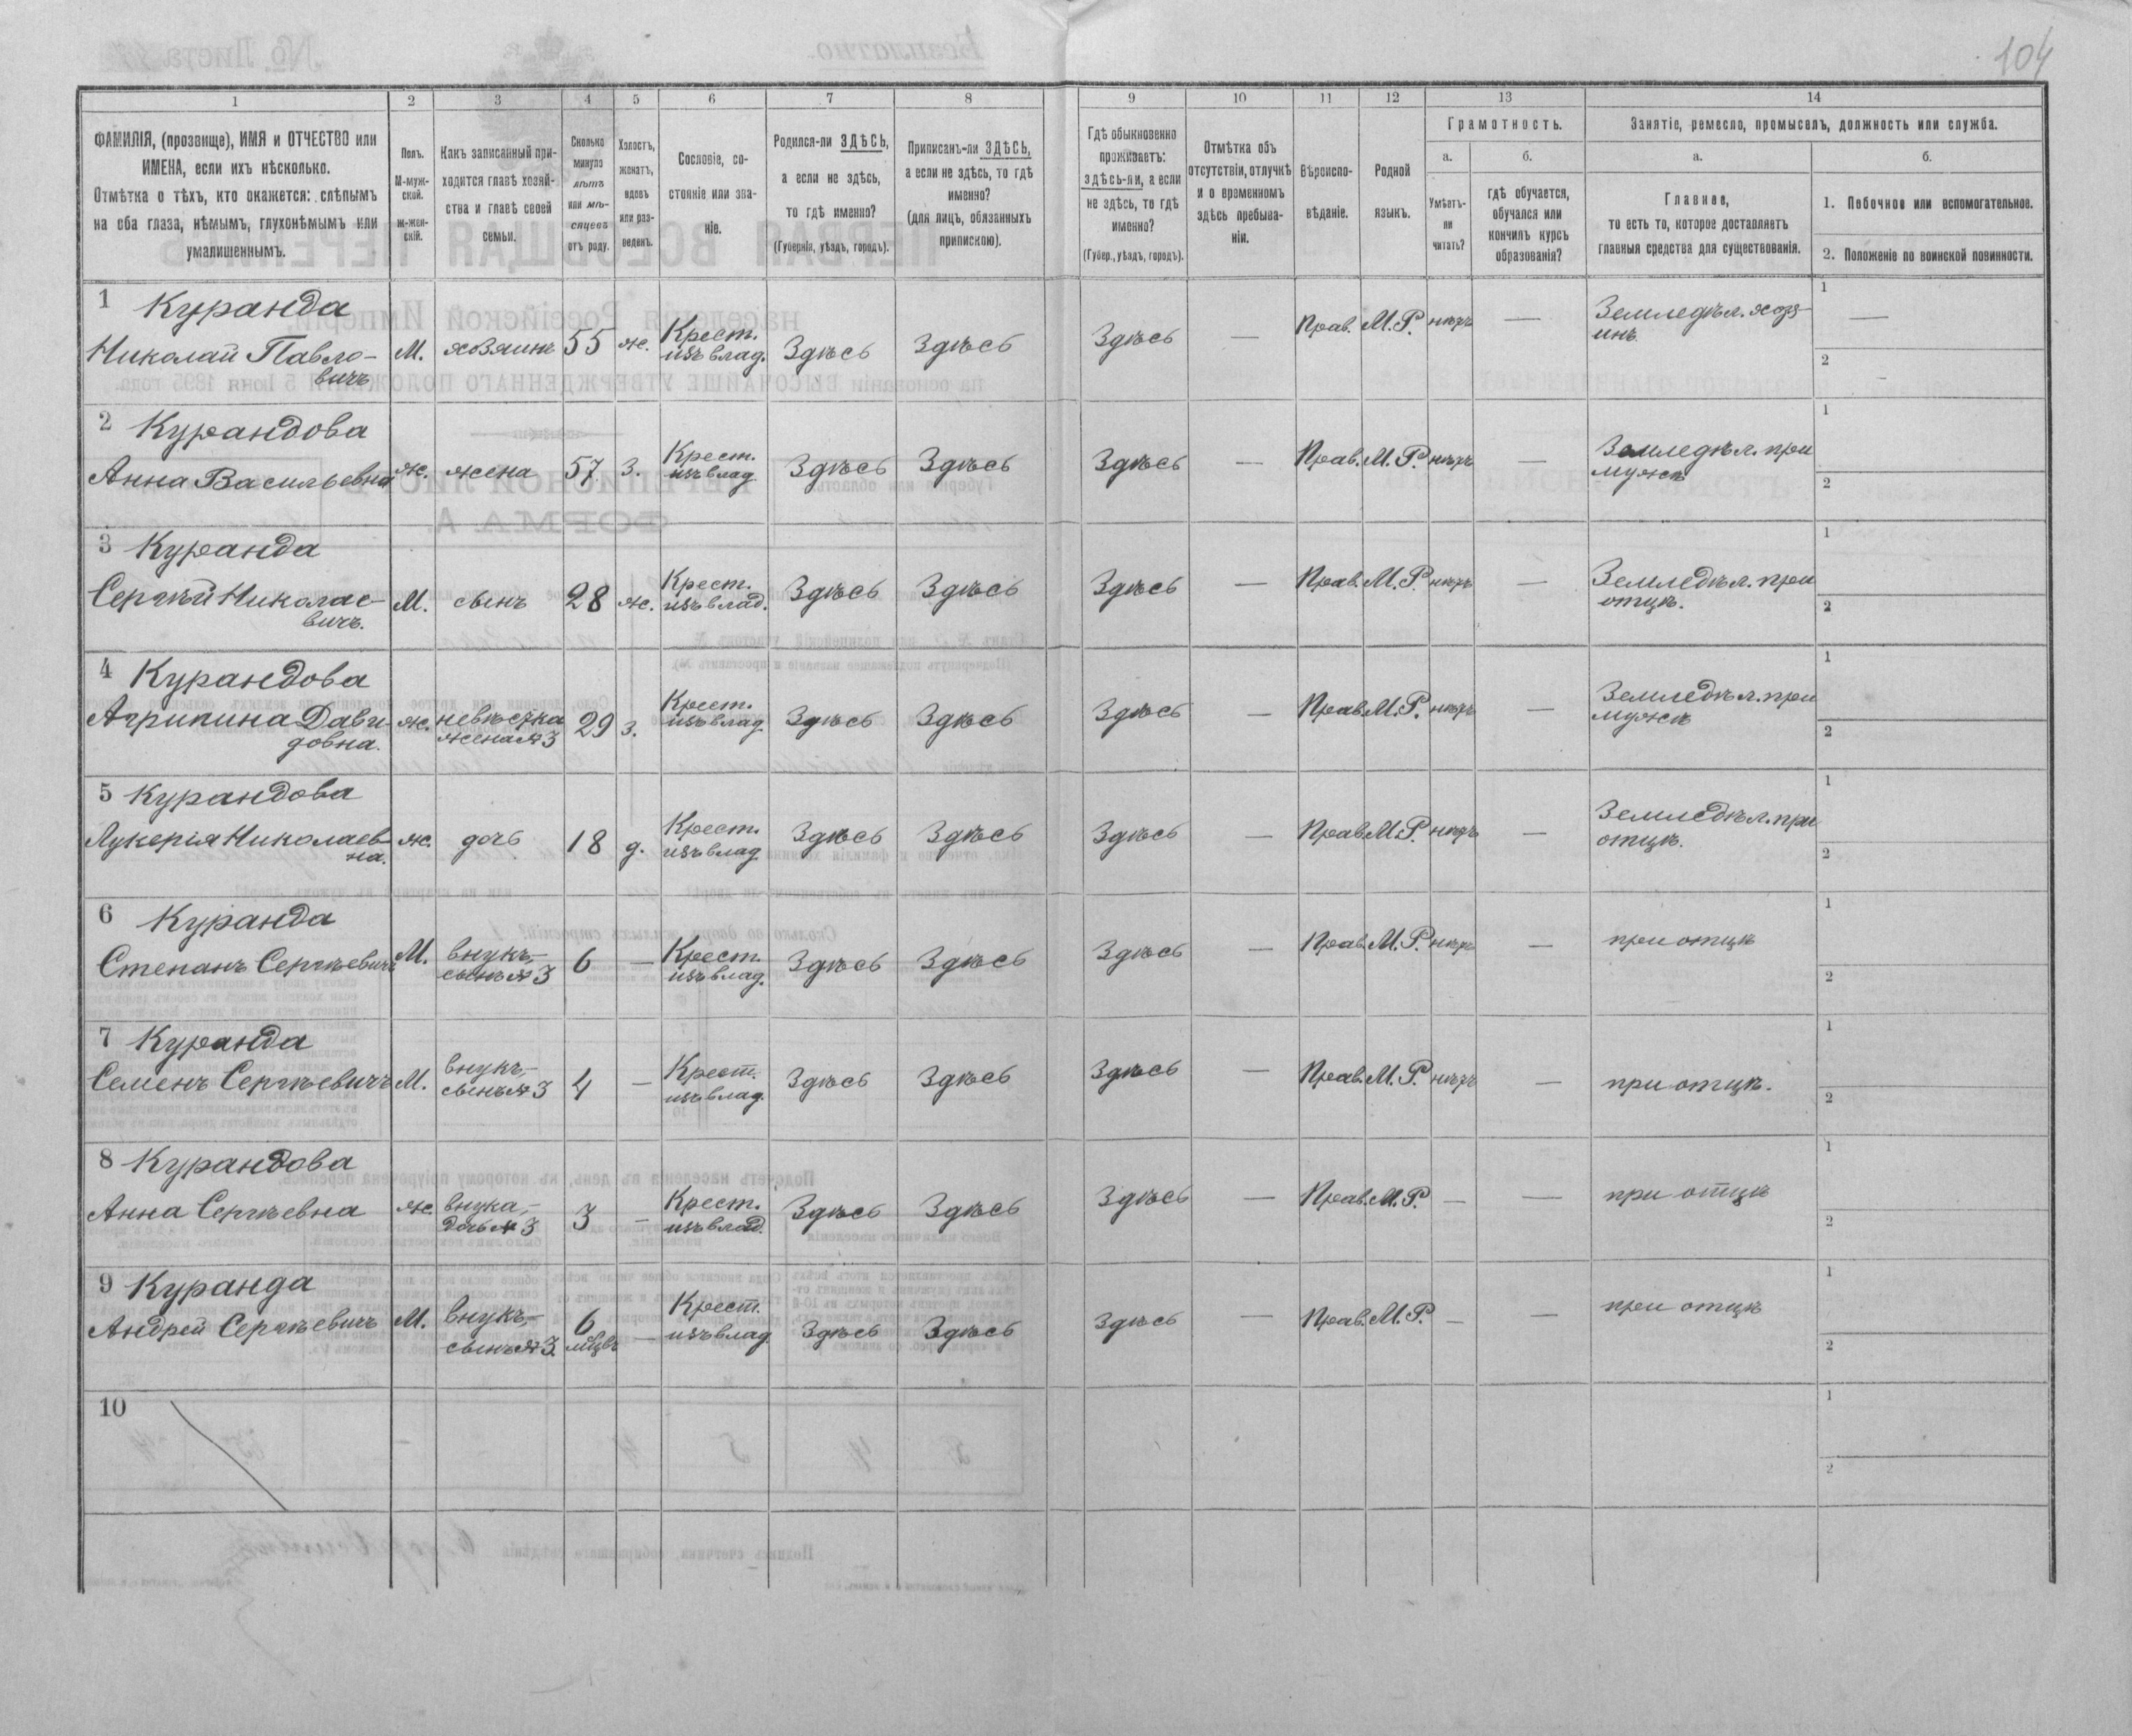 104
1 2 3 4 5 6 7 8 9 10 11 12 13 14
ФАМИЛІЯ, (прозвище), ИМЯ и ОТЧЕСТВО или
ИМЕНА, если ихъ нѣсколько.
Отмѣтка о тѣхъ, кто окажется: слѣпымъ
на оба глаза, нѣмымъ, глухонѣмымъ или
умалишеннымъ.
Полъ.
М-муж-
ской.
ж-жен-
скій.
Какъ записанный при-
ходится главѣ хозяй-
ства и главѣ своей
семьи.
Сколько
минуло
лѣтъ
или мѣ-
сяцевъ
отъ роду.
Холостъ,
женатъ,
вдовъ
или раз-
веденъ.
Сословіе, со-
стояніе или зва-
ніе.
Родился-ли ЗДѢСЬ,
а если не здѣсь,
то гдѣ именно?
(Губернія, уѣздъ, городъ).
Приписанъ-ли ЗДѢСЬ,
а если не здѣсь, то гдѣ
именно?
(для лицъ, обязанныхъ
припискою).
Гдѣ обыкновенно
проживаетъ:
здѣсь-ли, а если
не здѣсь, то гдѣ
именно?
(Губер., уѣздъ, городъ).
Отмѣтка объ
отсутствіи, отлучкѣ
и о временномъ
здѣсь пребыва-
ніи.
Вѣроиспо-
вѣданіе.
Родной
языкъ.
Грамотность.
а. б.
Умѣетъ-
ли
читать?
гдѣ обучается,
обучался или
кончилъ курсъ
образованія?
Занятіе, ремесло, промыселъ, должность или служба.
а. б.
Главное,
то есть то, которое доставляетъ
главныя средства для существованія.
1. Побочное или вспомогательное.
2. Положеніе по воинской повинности.
1 Куранда
Николай Павло-
вичъ
М. хозяинъ 55 ж. Крест.
изъ влад. Здѣсь Здѣсь Здѣсь — Прав. М.Р. нѣтъ — Земледѣл. хозя-
инъ.
1 —
2 —
2 Курандова
Анна Васильевна ж. жена 57 З. Крест.
изъ влад. Здѣсь Здѣсь Здѣсь — Прав. М.Р. нѣтъ — Земледѣл. при
мужѣ
1
2
3 Куранда
Сергѣй Николае-
вичъ.
М. сынъ 28 ж. Крест.
изъ влад. Здѣсь Здѣсь Здѣсь — Прав. М.Р. нѣтъ — Земледѣл. при
отцѣ.
1
2
4 Курандова
Агрипина Дави-
довна.
ж. невѣстка
жена № 3 29 З. Крест.
изъ влад. Здѣсь Здѣсь Здѣсь — Прав. М.Р. нѣтъ — Земледѣл. при
мужѣ
1
2
5 Курандова
Лукерія Николаев-
на.
ж. дочь 18 д. Крест.
изъ влад. Здѣсь Здѣсь Здѣсь — Прав. М.Р. нѣтъ — Земледѣл. при
отцѣ.
1
2
6 Куранда
Степанъ Сергѣевичъ М. внукъ,-
сынъ № 3 6 — Крест.
изъ влад. Здѣсь Здѣсь Здѣсь — Прав. М.Р. нѣтъ — при отцѣ
1
2
7 Куранда
Семенъ Сергѣевичъ М. внукъ,-
сынъ № 3 4 — Крест.
изъ влад. Здѣсь Здѣсь Здѣсь — Прав. М.Р. нѣтъ — при отцѣ.
1
2
8 Курандова
Анна Сергѣевна ж. внука,-
дочь № 3 3 — Крест.
изъ влад. Здѣсь Здѣсь Здѣсь — Прав. М.Р. — — при отцѣ
1
2
9 Куранда
Андрей Сергѣевичъ М. внукъ,-
сынъ № 3. 6
мѣцвъ — Крест.
изъ влад. Здѣсь Здѣсь Здѣсь — Прав. М.Р. — — при отцѣ
1
2
10
1
2